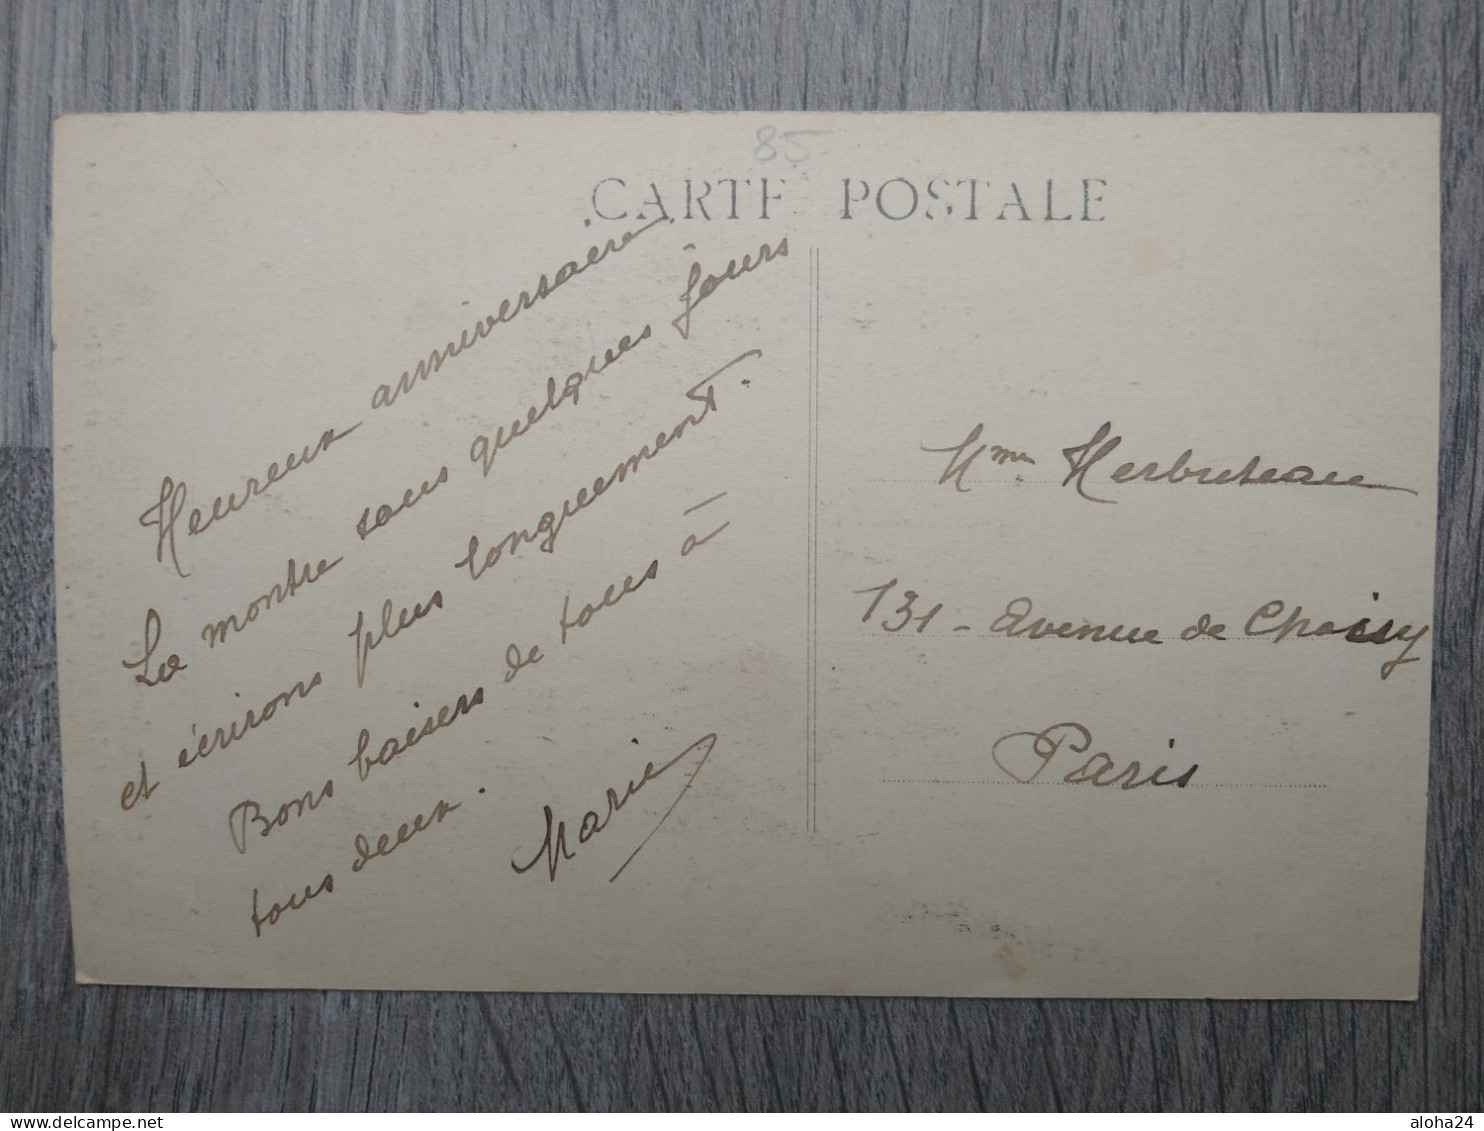 85
CARTE POSTALE
Heureux anniversaire.
La montre sous quelques jours
et écrirons plus longuement.
Bons baisers de tous à
tous deux.
Marie
Mme Herbreteau
131 - Avenue de Choisy
Paris
delcampe.net
aloha24